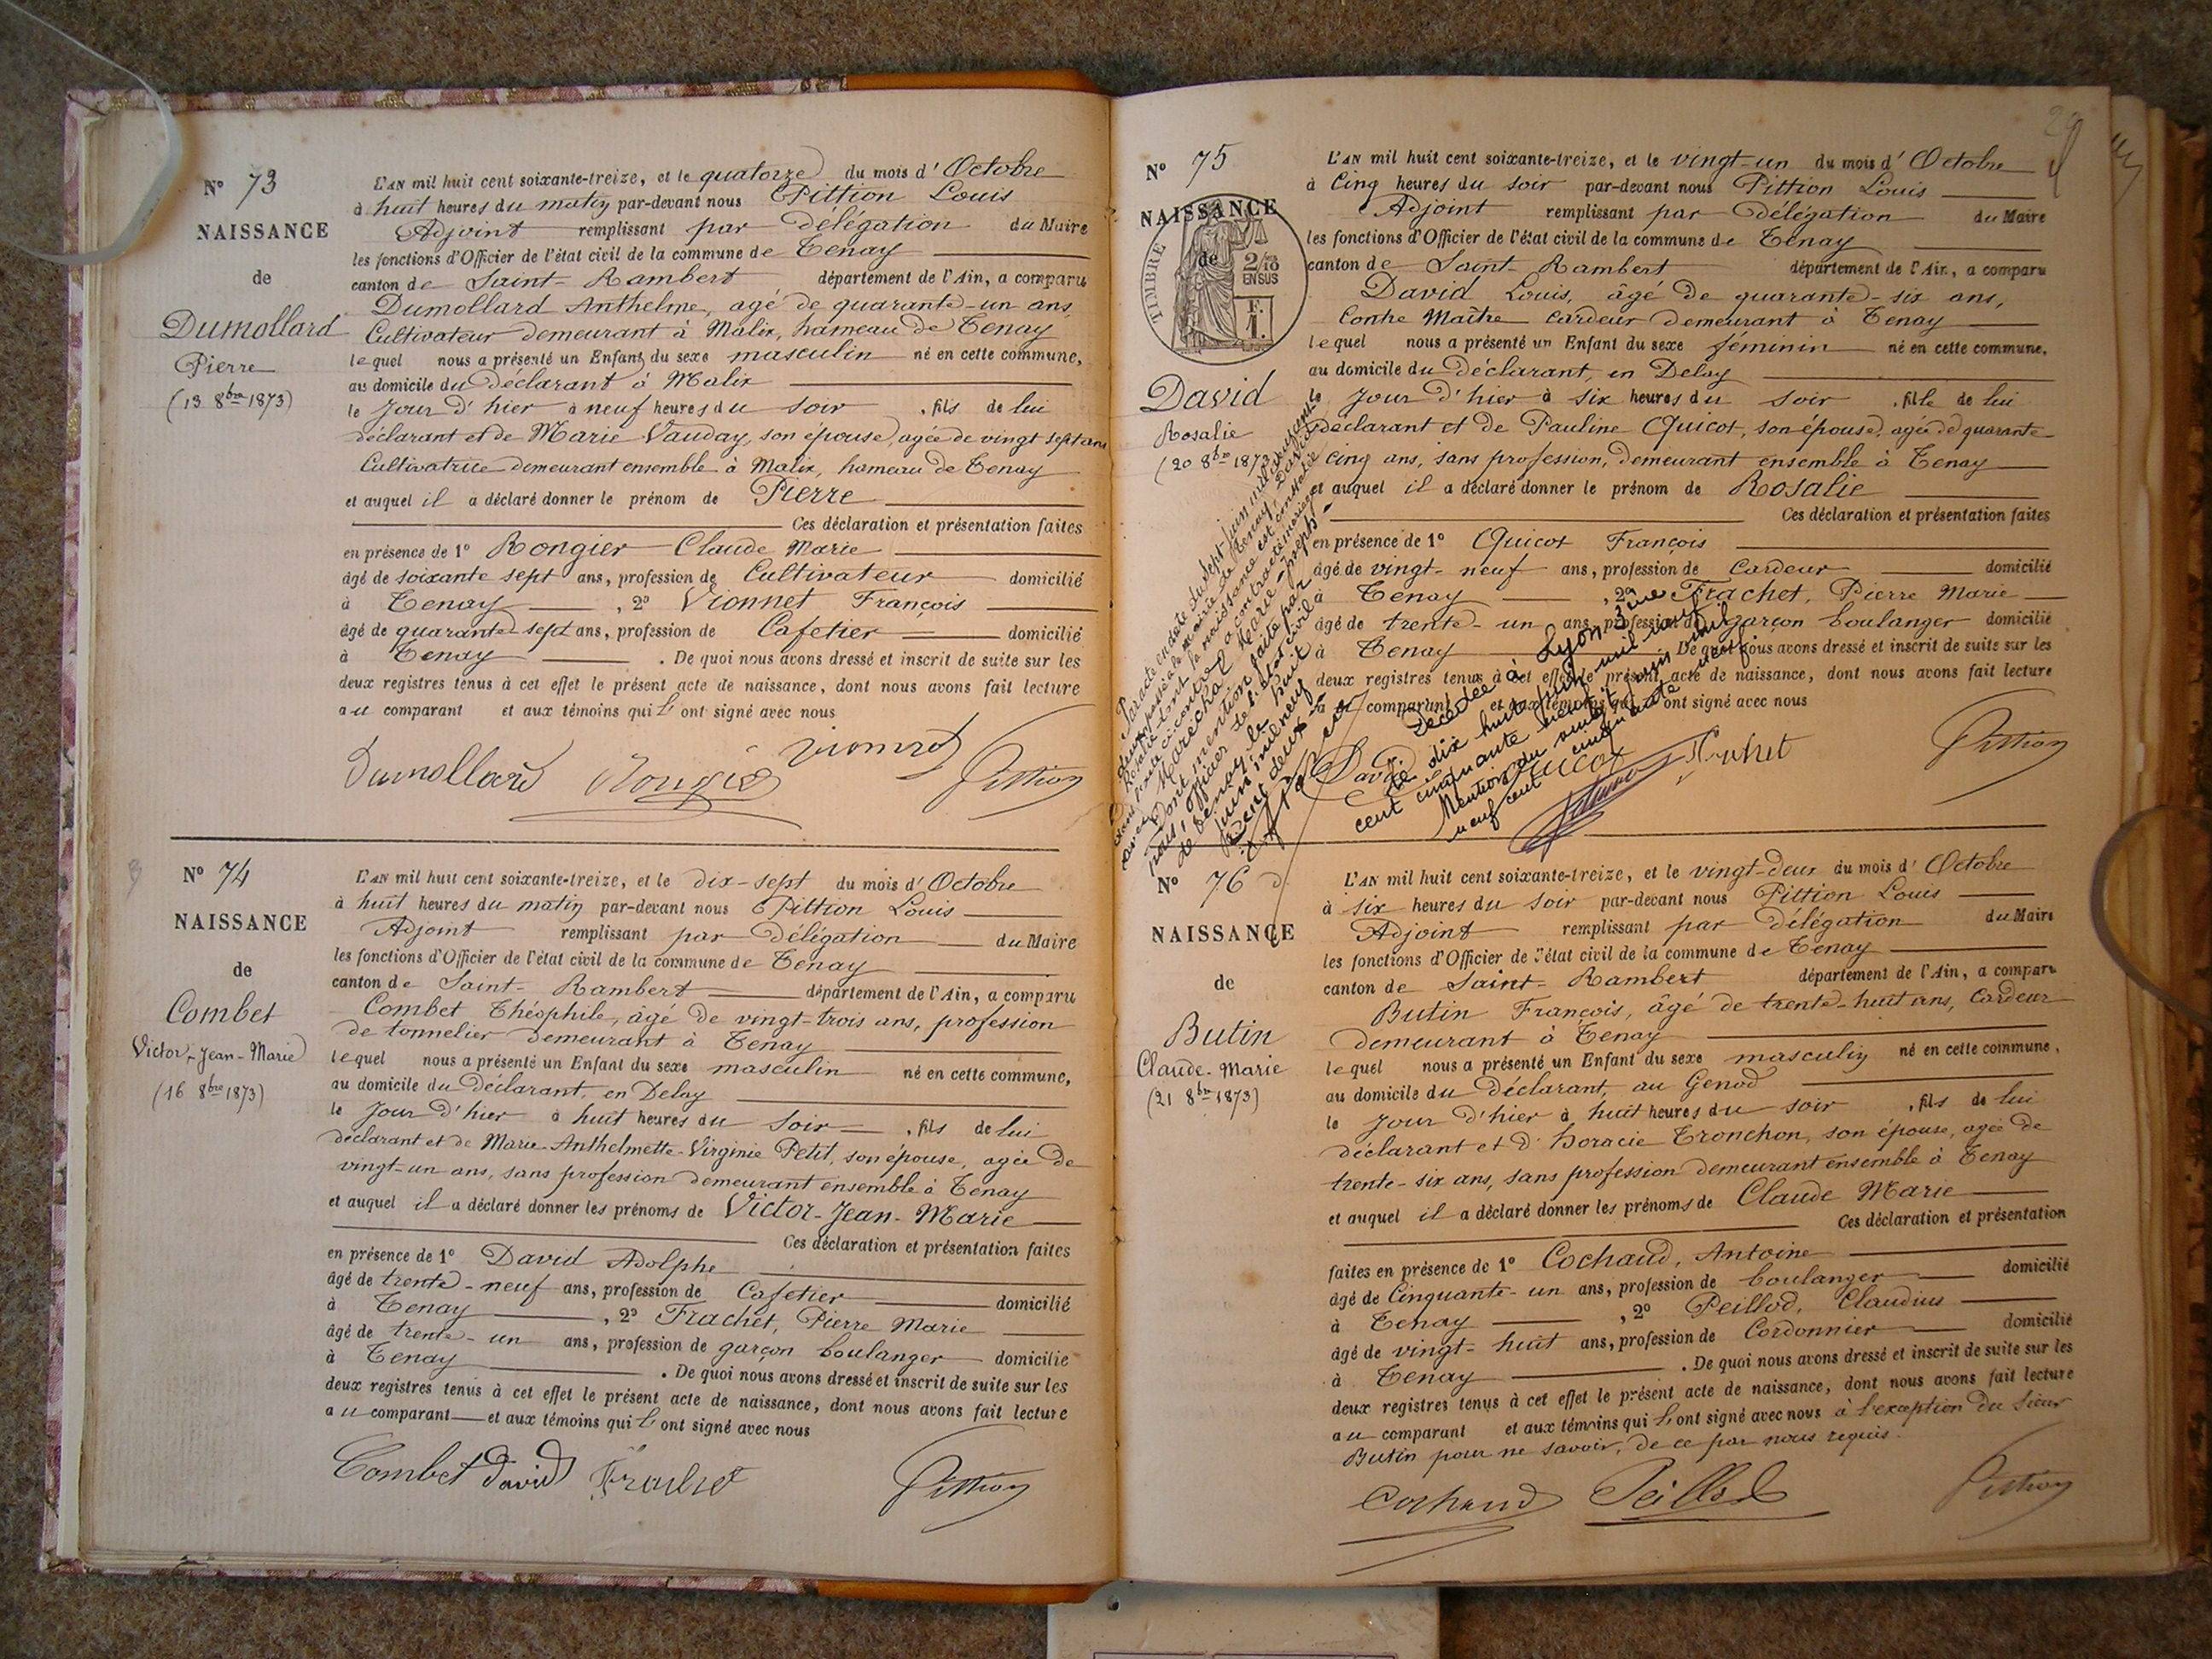 N° 73
NAISSANCE
de
Dumollard
Pierre
(13 8bre 1873)
L'AN mil huit cent soixante-treize, et le quatorze du mois d'Octobre
à huit heures du matin par-devant nous Pittion Louis
Adjoint remplissant par délégation du Maire
les fonctions d'Officier de l'état civil de la commune de Tenay
canton de Saint-Rambert département de l'Ain, a comparu
Dumollard Anthelme, agé de quarante-un ans,
Cultivateur demeurant à Malix, hameau de Tenay
lequel nous a présenté un Enfant du sexe masculin né en cette commune,
au domicile du déclarant à Malix
le Jour d'hier à neuf heures du soir, fils de lui
déclarant et de Marie Vauday, son épouse, agée de vingt sept ans
Cultivatrice demeurant ensemble à Malix, hameau de Tenay
et auquel il a déclaré donner le prénom de Pierre
Ces déclaration et présentation faites
en présence de 1° Rongier Claude Marie
âgé de soixante sept ans, profession de Cultivateur domicilié
à Tenay, 2° Vionnet François
âgé de quarante-sept ans, profession de Cafetier domicilié
à Tenay. De quoi nous avons dressé et inscrit de suite sur les
deux registres tenus à cet effet le présent acte de naissance, dont nous avons fait lecture
au comparant et aux témoins qui l'ont signé avec nous
Dumollard Rongier Vionnet Pittion
N° 74
NAISSANCE
de
Combet
Victor-Jean-Marie
(16 8bre 1873)
L'AN mil huit cent soixante-treize, et le dix-sept du mois d'Octobre
à huit heures du matin par-devant nous Pittion Louis
Adjoint remplissant par délégation du Maire
les fonctions d'Officier de l'état civil de la commune de Tenay
canton de Saint-Rambert département de l'Ain, a comparu
Combet Théophile, agé de vingt-trois ans, profession
de tonnelier demeurant à Tenay
lequel nous a présenté un Enfant du sexe masculin né en cette commune,
au domicile du déclarant, en Delay
le Jour d'hier à huit heures du soir, fils de lui
déclarant et de Marie-Anthelmette-Virginie Petit, son épouse, agée de
vingt-un ans, sans profession demeurant ensemble à Tenay
et auquel il a déclaré donner les prénoms de Victor-Jean-Marie
Ces déclaration et présentation faites
en présence de 1° David Adolphe
âgé de trente-neuf ans, profession de Cafetier domicilié
à Tenay, 2° Frachet, Pierre Marie
âgé de trente-un ans, profession de garçon boulanger domicilié
à Tenay. De quoi nous avons dressé et inscrit de suite sur les
deux registres tenus à cet effet le présent acte de naissance, dont nous avons fait lecture
au comparant et aux témoins qui l'ont signé avec nous
Combet David Frachet Pittion
N° 75
NAISSANCE
de
TIMBRE
2/10
EN SUS
F.
1.
David
Rosalie
(20 8bre 1873)
L'AN mil huit cent soixante-treize, et le vingt-un du mois d'Octobre
à Cinq heures du soir par-devant nous Pittion Louis
Adjoint remplissant par délégation du Maire
les fonctions d'Officier de l'état civil de la commune de Tenay
canton de Saint-Rambert département de l'Ain, a comparu
David Louis, âgé de quarante-six ans,
Contre Maître Cardeur demeurant à Tenay
lequel nous a présenté un Enfant du sexe féminin né en cette commune,
au domicile du déclarant, en Delay
le Jour d'hier à six heures du soir, fille de lui
déclarant et de Pauline Quicot, son épouse, agée de quarante
cinq ans, sans profession, demeurant ensemble à Tenay
et auquel il a déclaré donner le prénom de Rosalie
Ces déclaration et présentation faites
en présence de 1° Quicot François
âgé de vingt-neuf ans, profession de Cardeur domicilié
à Tenay, 2° Frachet, Pierre Marie
âgé de trente-un ans, profession de garçon boulanger domicilié
à Tenay. De quoi nous avons dressé et inscrit de suite sur les
deux registres tenus à cet effet le présent acte de naissance, dont nous avons fait lecture
au comparant et aux témoins qui l'ont signé avec nous
David Quicot Frachet Pittion
Par acte en date du sept juin mil neuf cent
deux, David
Rosalie dont la naissance est constatée
ci-contre, a contracté mariage
avec Maréchal Marie-Joseph.
Dont mention faite par
nous, officier de l'état civil
de Tenay, le huit
juin mil neuf
cent deux
Décédée à Lyon 3ème
le dix huit juin mil neuf
cent cinquante neuf
Mention du vingt juin mil
neuf cent cinquante neuf
N° 76
NAISSANCE
de
Butin
Claude-Marie
(21 8bre 1873)
L'AN mil huit cent soixante-treize, et le vingt-deux du mois d'Octobre
à six heures du soir par-devant nous Pittion Louis
Adjoint remplissant par délégation du Maire
les fonctions d'Officier de l'état civil de la commune de Tenay
canton de Saint-Rambert département de l'Ain, a comparu
Butin François, âgé de trente-huit ans, Cardeur
demeurant à Tenay
lequel nous a présenté un Enfant du sexe masculin né en cette commune,
au domicile du déclarant, au Genod
le Jour d'hier à huit heures du soir, fils de lui
déclarant et d'horacie Tronchon, son épouse, agée de
trente-six ans, sans profession demeurant ensemble à Tenay
et auquel il a déclaré donner les prénoms de Claude Marie
Ces déclaration et présentation
faites en présence de 1° Cochaud, Antoine
âgé de Cinquante-un ans, profession de boulanger domicilié
à Tenay, 2° Peillod, Claudius
âgé de vingt-huit ans, profession de Cordonnier domicilié
à Tenay. De quoi nous avons dressé et inscrit de suite sur les
deux registres tenus à cet effet le présent acte de naissance, dont nous avons fait lecture
au comparant et aux témoins qui l'ont signé avec nous à l'exception du sieur
Butin pour ne savoir, de ce par nous requis.
Cochaud Peillod Pittion